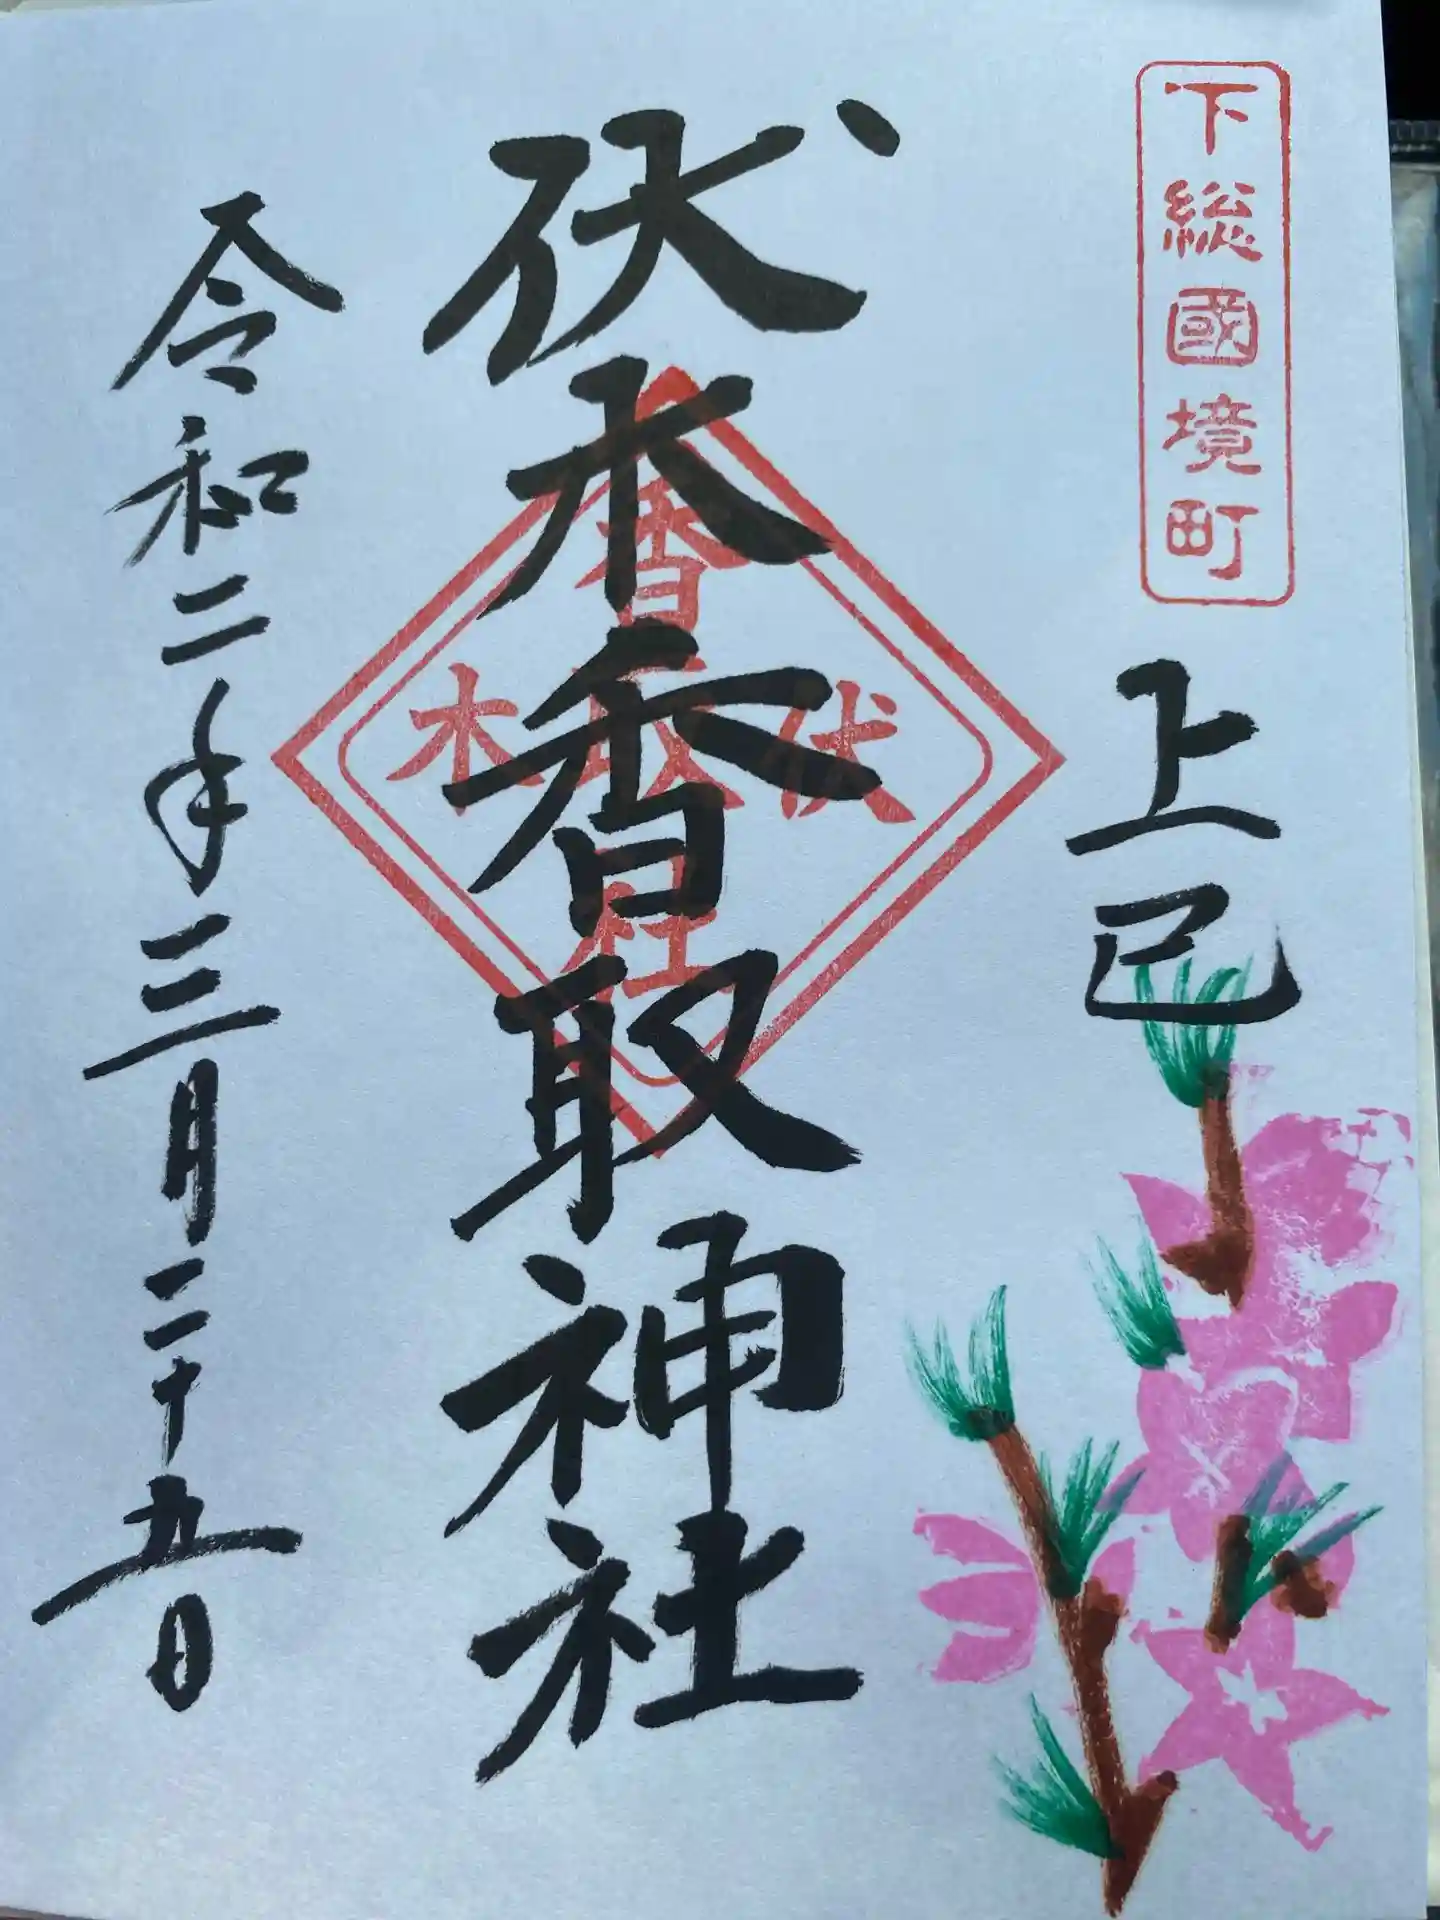 下総國境町
上巳
伏木香取神社
伏木
香取社
令和二年三月二十五日